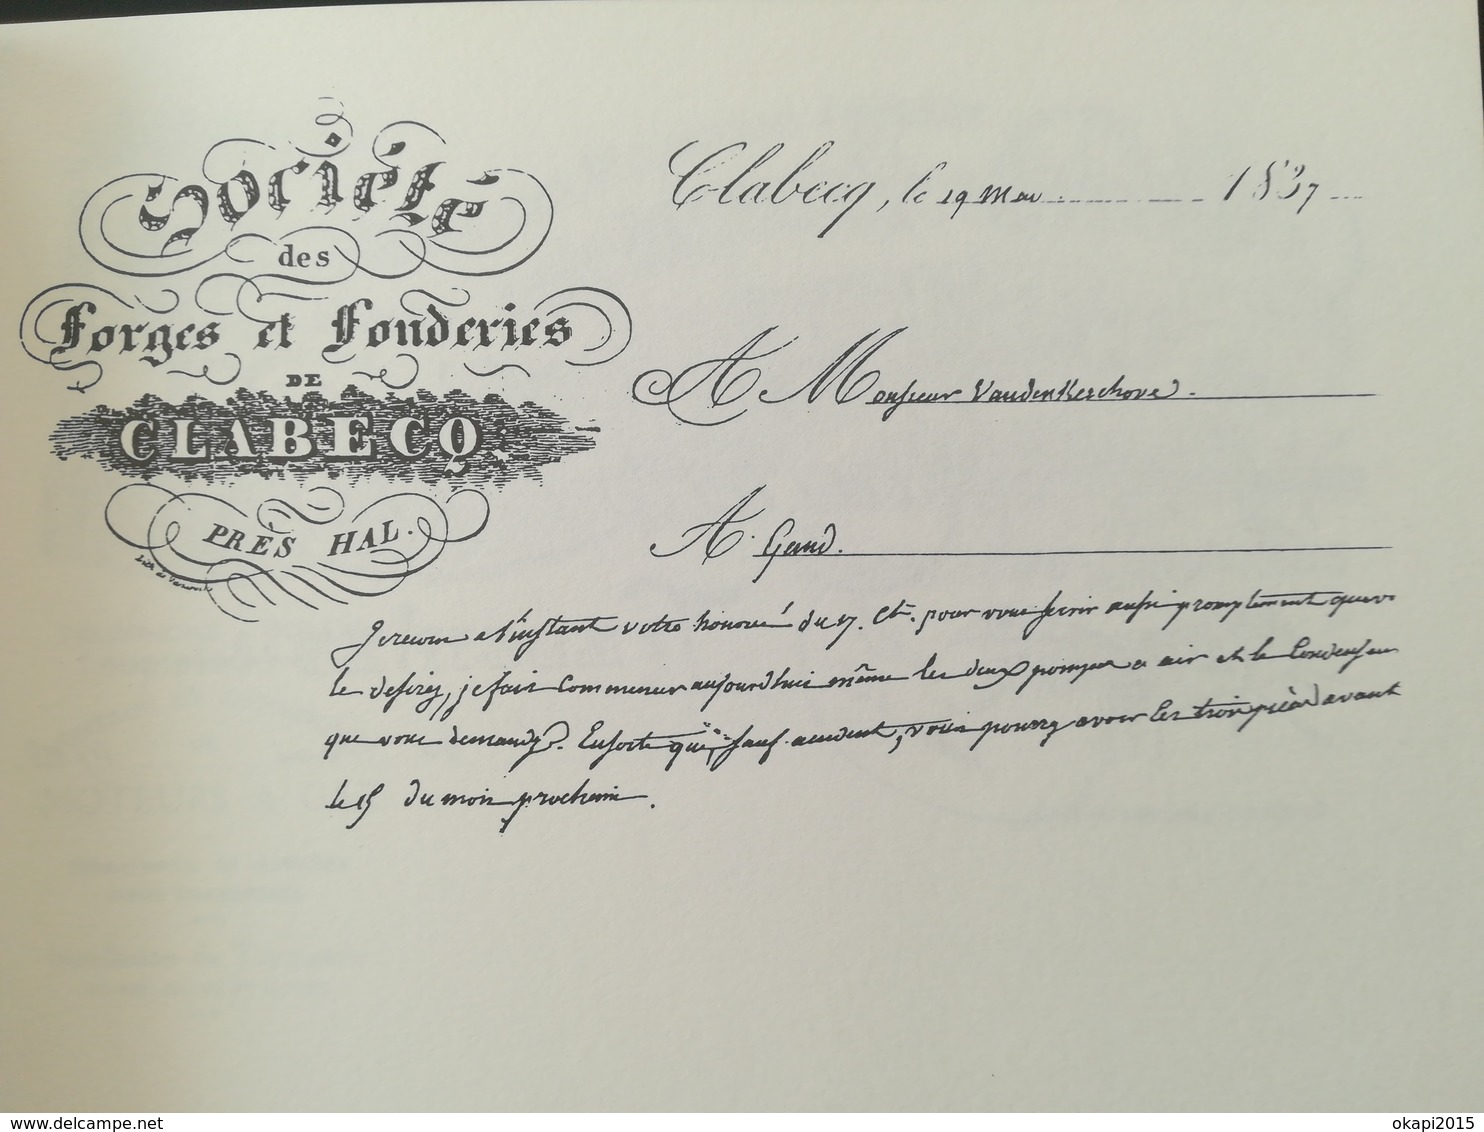 Société
des
Forges et Fonderies
DE
CLABECQ.
PRÈS HAL.
Clabecq, le 19 Mai 1837
A Monsieur Vandenkerchove.
A Gand.
Je recois a l'instant votre honoré du 17. Ct. pour vous servir aussi promptement que vous
le desirez, je fais commencer aujourdhui même les deux pompes a air et le Condenseur
que vous demandez. Ensorte que, sauf accident, vous pourrez avoir les trois pièces avant
le 15 du mois prochain.
okapi2015